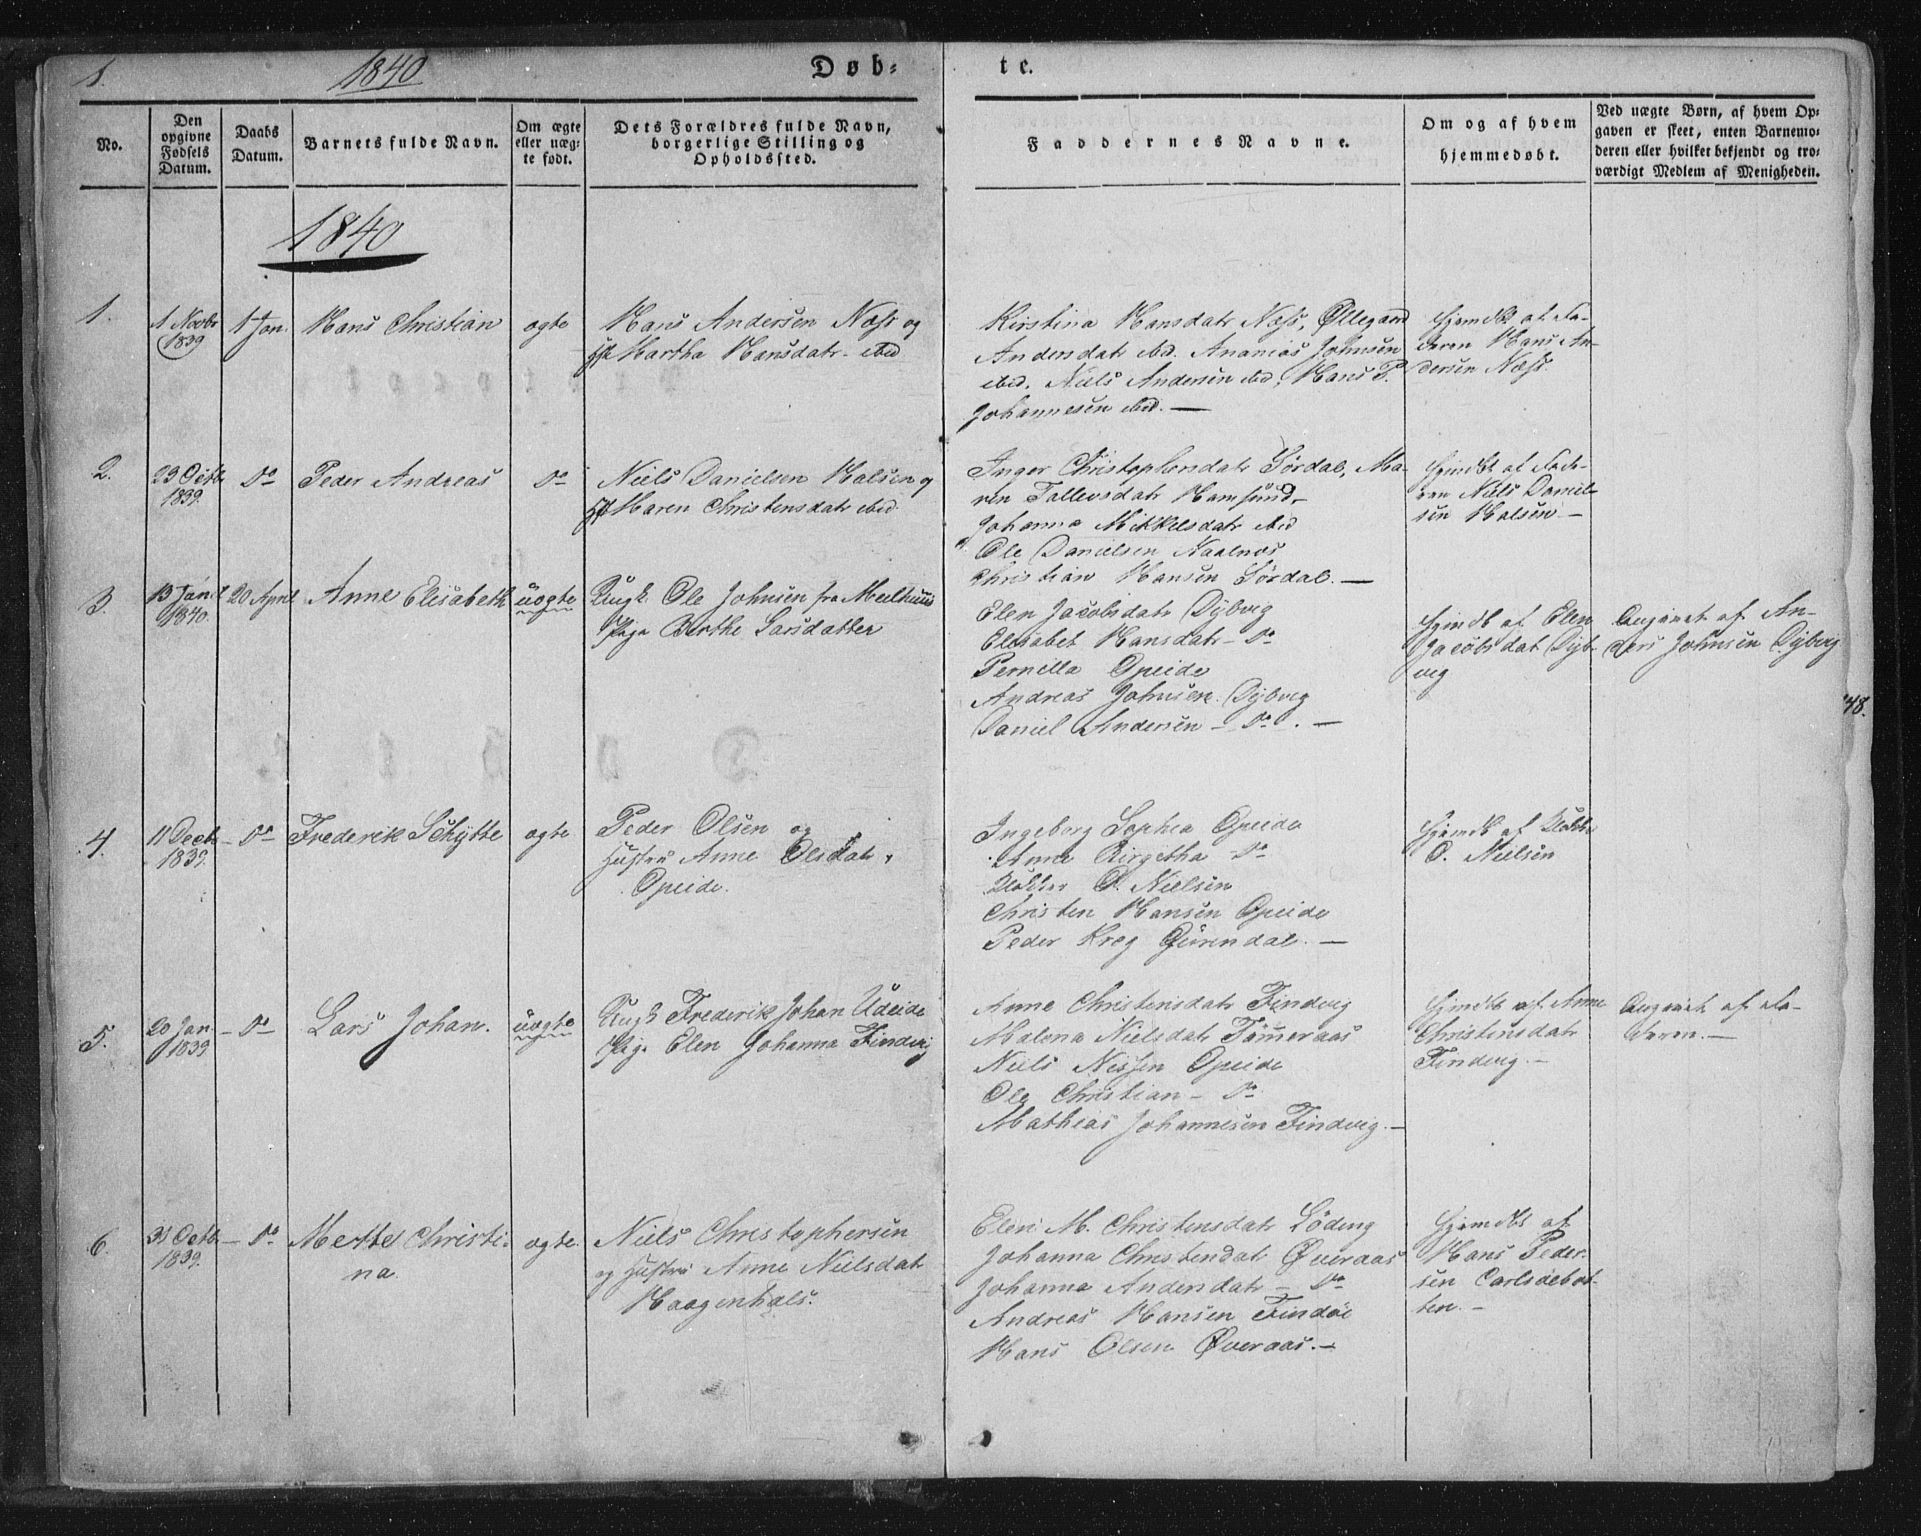 1.
1840
Døb-
te.
No.
Den
opgivne
Fødsels
Datum.
Daabs
Datum.
Barnets fulde Navn.
Om ægte
eller uæg-
te født.
Dets Forældres fulde Navn,
borgerlige Stilling og
Opholdssted.
Faddernes Navne.
Om og af hvem
hjemmedøbt.
Ved uægte Børn, af hvem Op-
gaven er skeet, enten Barnemo-
deren eller hvilket bekjendt og tro-
værdigt Medlem af Menigheden.
1840
1.
1 Novbr
1839
1 Jan.
Hans Christian
ægte
Hans Andersen Næss og
Martha Hansdatr ibid
Kirstina Hansdatr Næss, Øllegaard
Andersdatr ibid. Ananias Johnsen
ibid. Niels Andersen ibid, Hans P.
Johannesen ibid. —
Hjemdbt af Fa-
deren Hans An-
dersen Næss.
2.
23 Octb
1839.
Do
Peder Andreas
Do
Niels Danielsen Halsen og
Maren Christensdatr ibid
Inger Christophersdatr Sørdal, Ma-
ren Tollevsdatr Hamsund,
Johanna Mikkelsdatr ibid
Ole Danielsen Naalnæs
Christian Hansen Sørdal. —
Hjemdbt af Fade-
ren Niels Daniel-
sen Halsen. —
3.
13 Jan.
1840.
20 April
Anne Elisabeth
uægte
Ungk. Ole Johnsen fra Meelhuus
Pige Berthe Larsdatter
Elen Jacobsdatr Dybvig
Elisabet Hansdatr - Do
Pernilla Opeide
Andreas Johnsen Dybvig
Daniel Andersen - Do. —
Hjemdb af Elen
Jacobsdat Dyb-
vig
Angivet af An-
ders Johnsen Dybvig
48.
4.
11 Decb
1839.
Do
Frederik Schytte
ægte
Peder Olsen og
Hustru Anne Olsdatr.
Opeide.
Ingeborg Sophia Opeide
Anne Birgitha Do
O. Nielsen
Christen Hansen Opeide
Peder Kreg
Hjemdb af
O. Nielsen
5.
20 Jan.
1839
Do
Lars Johan.
uægte
Ungk Frederik Johan Udeide
Pige Elen Johanna Findvig
Anne Christensdatr Findvig
Malena Nielsdatr Tømeraas
Niels Nissen Opeide
Ole Christian - Do
Mathias Johannesen Findvig. —
Hjemdbt af Anne
Christensdatr
Findvig. —
Angivet af Fa-
deren. —
6.
31 Octb
1839.
Do
Mette Christi-
na.
ægte
Niels Christophersen
og Hustru Anne Nielsdatr
Haagenhals.
Elen M. Christensdatr Løding
Johanna Christendatr Øveraas
Johanna Andersdatr - Do
Andreas Hansen Findøe
Hans Olsen Øveraas. —
Hjemdbt af
Hans Peder-
sen Carlsøebot-
ten. —